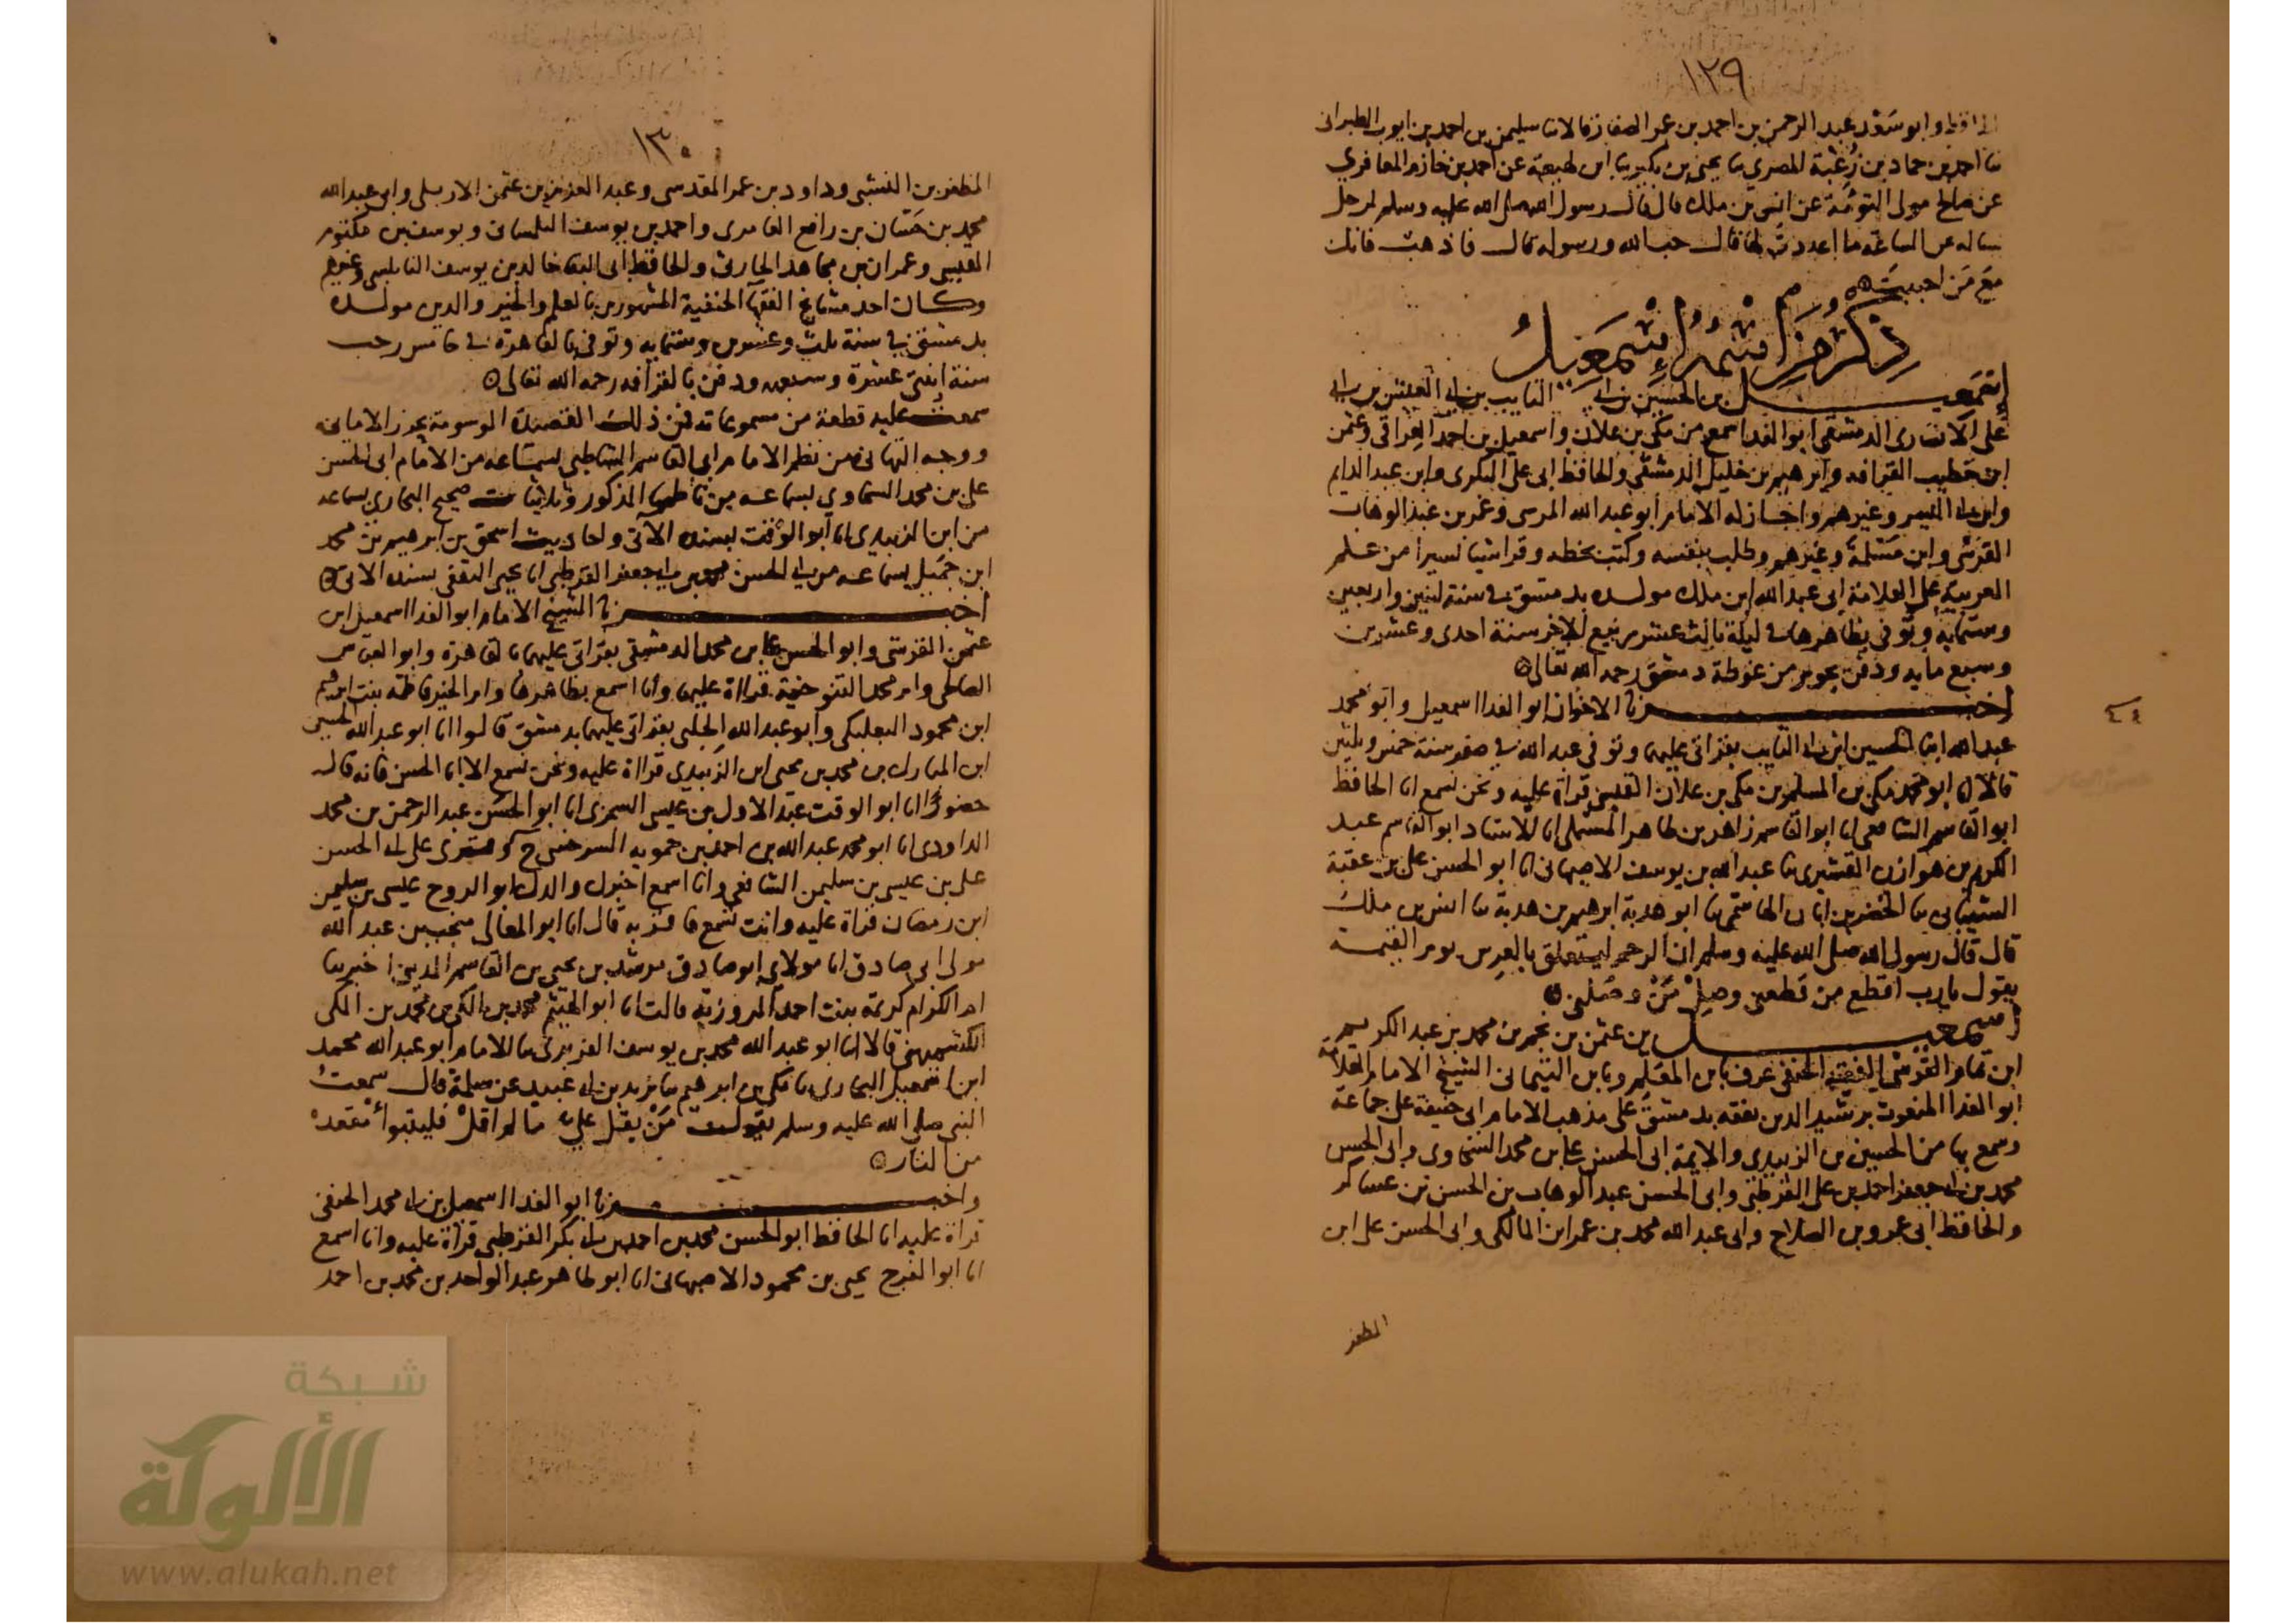 ١٢٩
وابو سَعْد عبد الرحمن بن احمد بن عمر الصفار قالا نا سليمن بن احمد بن ايوب الطبراني
نا احمد بن حماد بن زُغبة المصري نا يحيى بن بكير نا ابن لهيعة عن احمد بن خازم المعافري
عن صالح مولى التوءمة عن انس بن ملك قال قال رسول الله صلى الله عليه وسلم لرجل
ساله عن الساعة ما اعددت لها قال حب الله ورسوله قال فاذهب فانك
مع مَن احببت
ذكر من اسمه إسمعيل
إسمعيل بن الحسين بن ابي التايب بن ابي العيش بن ابي
علي الانصاري الدمشقي ابو الفدا سمع من مكي بن علان واسمعيل بن احمد العراقي وعثمن
ابن خطيب القرافه وابرهيم بن خليل الدمشقي والحافظ ابي علي البكري وابن عبد الدايم
وابن ابي اليسر وغيرهم واجاز له الامام ابو عبد الله المرسي وعمر بن عبد الوهاب
القرشي وابن مَسْلمة وغيرهم وطلب بنفسه وكتب بخطه وقرا شيا يسيرا من علم
العربية على العلامة ابي عبد الله ابن ملك مولده بدمشق في سنة اثنين واربعين
وستمايه وتوفي بظاهرها في ليلة ثالث عشر ربيع الاخر سنة احدى وعشرين
وسبع مايه ودفن بجوبر من غوطة دمشق رحمه الله تعالى
اخبرنا الاخوان ابو الفدا اسمعيل وابو محمد
عبد الله ابنا الحسين ابن ابي التايب بقراتي عليهما وتوفي عبد الله في صفر سنة خمس وثلثين
قالا انا ابو محمد مكي بن المسلم بن مكي بن علان القيسي قراة عليه ونحن نسمع انا الحافظ
ابو القاسم الشافعي انا ابو القاسم زاهر بن طاهر المستملي انا الاستاد ابو القاسم عبد
الكريم بن هوازن القشيري نا عبد الله بن يوسف الاصبهاني انا ابو الحسن علي بن عقبة
الشيباني نا الخضر بن ابان الهاشمي نا ابو هدبة ابرهيم بن هدبة نا انس بن ملك
قال قال رسول الله صلى الله عليه وسلم ان الرحم ليتعلق بالعرش يوم القيمة
يقول يا رب اقطع من قطعني وصِلْ مَنْ وصلني
إسمعيل بن عثمن بن محمد بن عبد الكريم
ابن تمام القرشي الفقيه الحنفي عرف بابن المعلم وبابن التيماني الشيخ الامام العلامة
ابو الفدا المنعوت برشيد الدين تفقه بدمشق على مذهب الامام ابي حنيفة على جماعة
وسمع بها من الحسين بن الزبيدي والايمة ابي الحسن علي بن محمد السخاوي وابي الحسن
محمد بن ابي جعفر احمد بن علي القرطبي وابي الحسن عبد الوهاب بن الحسن بن عساكر
والحافظ ابي عمرو بن الصلاح وابي عبد الله محمد بن عمر ابن المالكي وابي الحسن علي ابن
المظفر
١٣٠
المظفر بن النشبي وداود بن عمر المقدسي وعبد العزيز بن عثمن الاربلي وابي عبد الله
محمد بن حسان بن رافع العامري واحمد بن يوسف التلمساني ويوسف بن مكتوم
القيسي وعمران بن مجاهد الحارثي والحافظ ابي البقا خالد بن يوسف النابلسي وغيرهم
وكان احد مشايخ الفقهآ الحنفية المشهورين بالعلم والخير والدين مولده
بدمشق في سنة ثلث وعشرين وستمايه وتوفي بالقاهرة في خامس رجب
سنة اربع عشرة وسبعمايه ودفن بالقرافه رحمه الله تعالى
سمعت عليه قطعة من مسموعاته فمن ذلك القصيدة الموسومة بحرز الاماني
ووجه التهاني من نظم الامام ابي القاسم الشاطبي بسماعه من الامام ابي الحسن
علي بن محمد السخاوي بسماعه من ناظمها المذكور وثلاثيات صحيح البخاري بسماعه
من ابن الزبيدي انا ابو الوقت بسنده الآتي واحاديث اسحق بن ابرهيم بن محمد
ابن جميل بسماعه من ابي الحسن محمد بن ابي جعفر القرطبي انا يحيى الثقفي بسنده الاتي
اخبرنا الشيخ الامام ابو الفدا اسمعيل ابن
عثمن القرشي وابو الحسن علي بن محمد الدمشقي بقراتي عليهما بالقاهرة وابو العباس
الصالحي وام محمد التنوخية قراة عليهما وانا اسمع بظاهرها وام الخير فاطمة بنت ابرهيم
ابن محمود البعلبكي وابو عبد الله الحلبي بقراتي عليهما بدمشق قالوا انا ابو عبد الله الحسين
ابن المبارك بن محمد بن يحيى ابن الزبيدي قراة عليه ونحن نسمع الا ابا الحسن فانه قال
حضورًا انا ابو الوقت عبد الاول بن عيسى السجزي انا ابو الحسن عبد الرحمن بن محمد
الداودي انا ابو محمد عبد الله بن احمد بن حمويه السرخسي ح وقرئ على ابي الحسن
علي بن عيسى بن سليمن الشافعي وانا اسمع اخبرك والدك ابو الروح عيسى بن سليمن
ابن رمضان قراة عليه وانت تسمع فاقر به قال انا ابو المعالي منجب بن عبد الله
مولى ابي صادق انا مولاي ابو صادق مرشد بن يحيى بن القاسم المديني اخبرتنا
ام الكرام كريمة بنت احمد المروزية قالت انا ابو الهيثم محمد بن المكي بن محمد بن المكي
الكشميهني قالا انا ابو عبد الله محمد بن يوسف الفربري نا الامام ابو عبد الله محمد
ابن اسمعيل البخاري نا مكي بن ابرهيم نا يزيد بن ابي عبيد عن سلمة قال سمعتُ
النبي صلى الله عليه وسلم يقول مَنْ يقل عليَّ ما لم اقلْ فليتبوأ مقعدهُ
من النار
واخبرنا ابو الفدا اسمعيل بن ابي محمد الحنفي
قراة عليه انا الحافظ ابو الحسن محمد بن احمد بن ابي بكر القرطبي قراة عليه وانا اسمع
انا ابو الفرج يحيى بن محمود الاصبهاني انا ابو طاهر عبد الواحد بن محمد بن احمد
شبكة
الألوكة
www.alukah.net